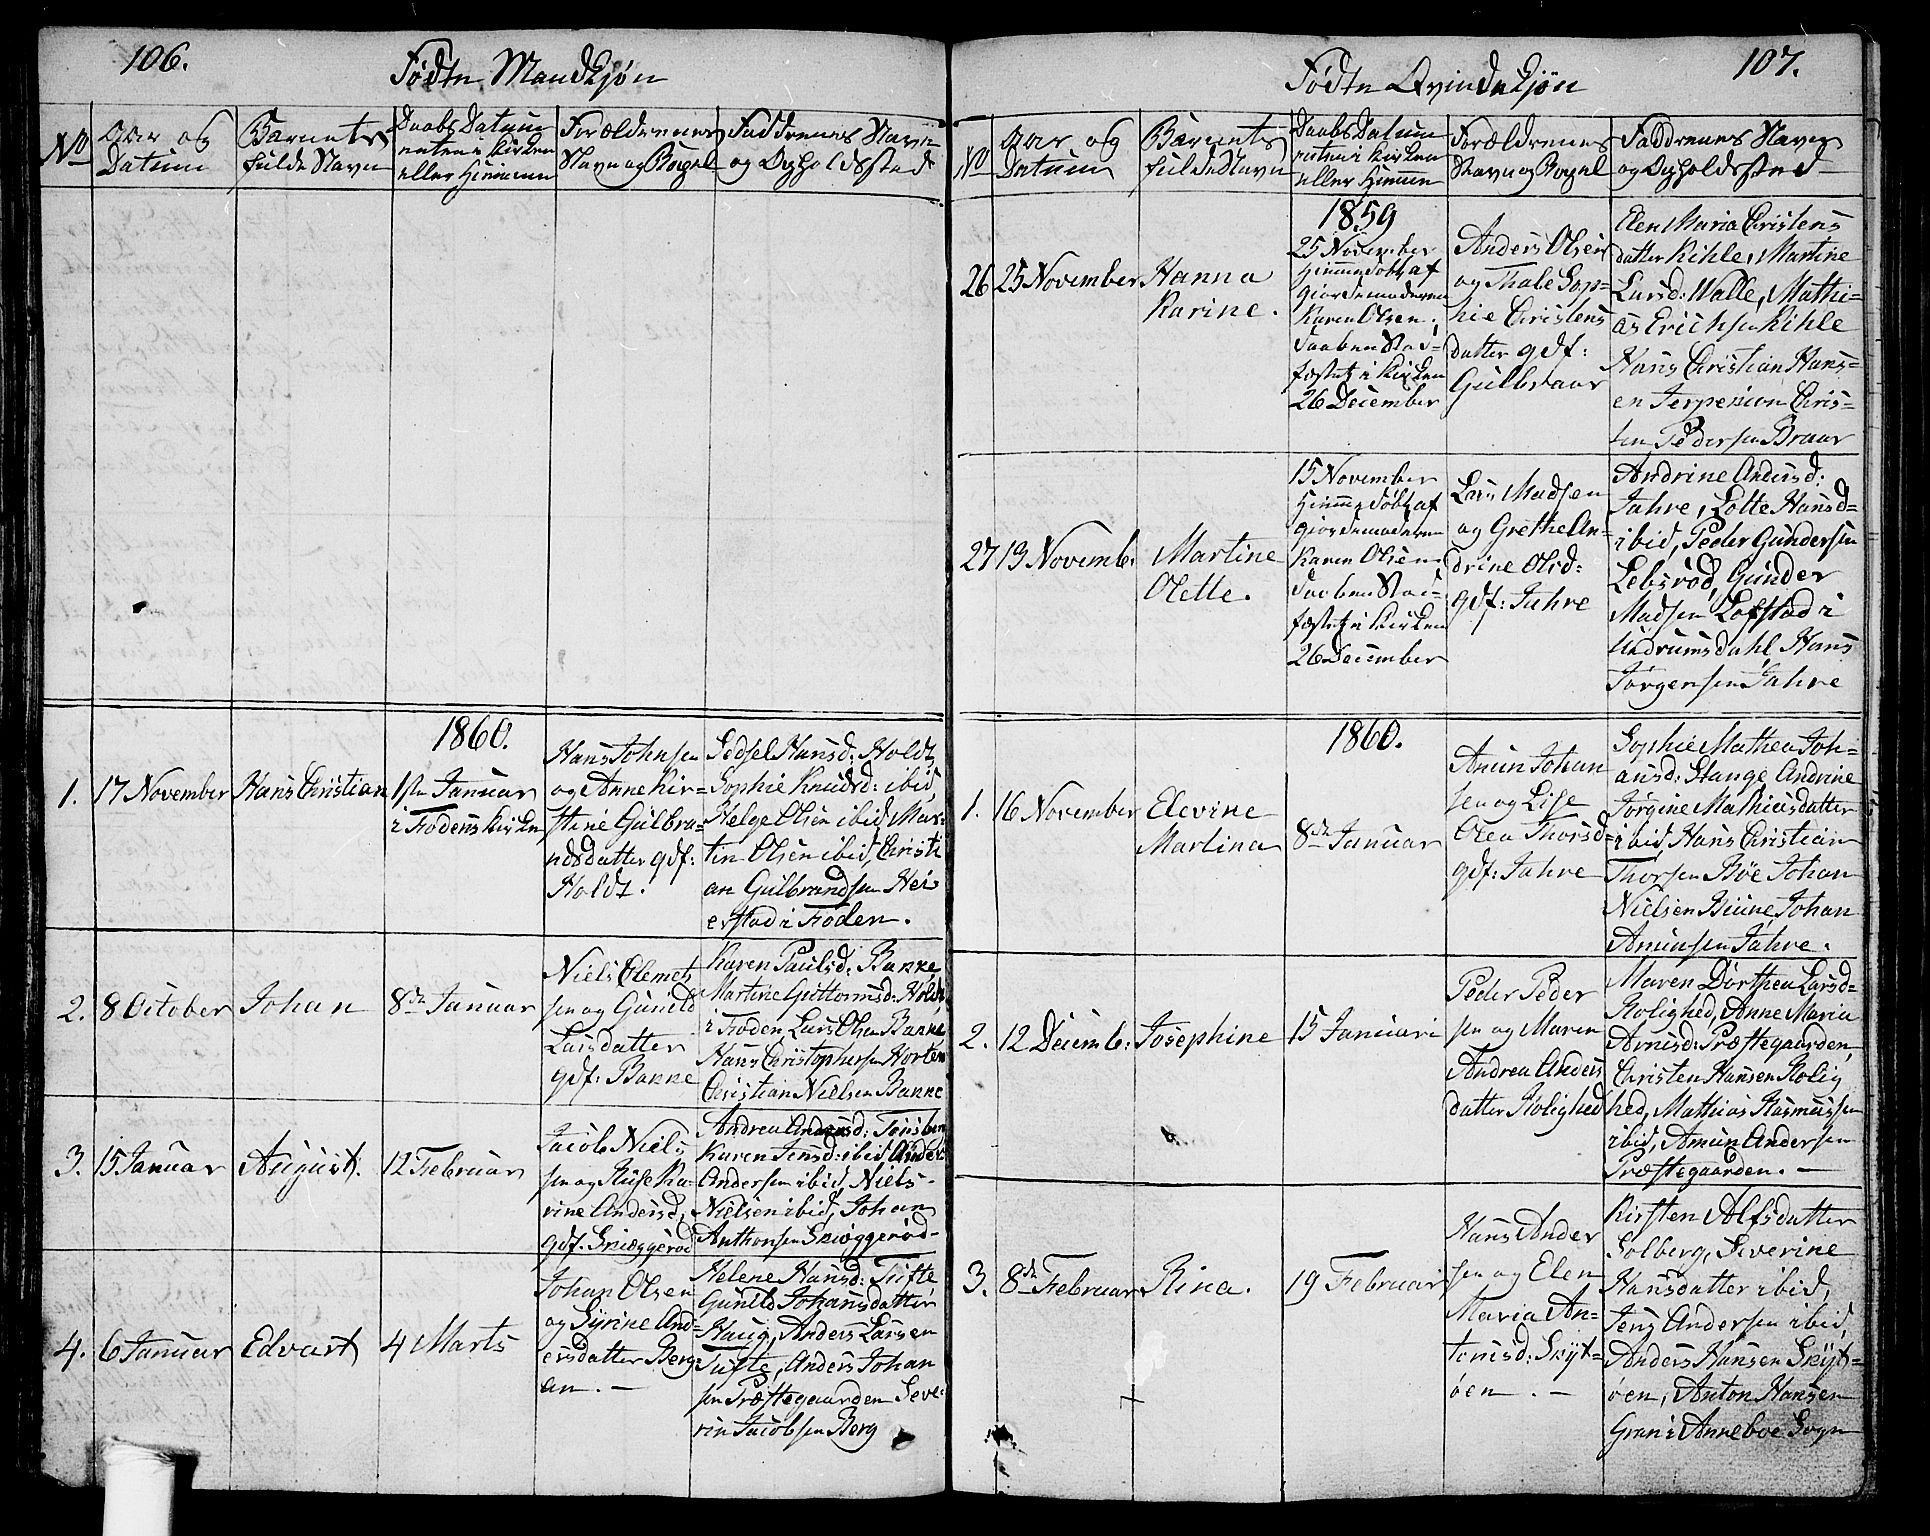 106.
Fødte Mandkjøn
No
Aar og
Datum
Barnets
fulde Navn
Daabs Datum
enten i Kirken
eller Hjemme
Forældrenes
Navn og Bopæl
Faddrenes Navn
og Opholdssted
1860.
1.
17 November
Hans Christian
1ste Januar
i Fødens Kirken
Hans Johnsen
og Anne Kir-
stine Gulbra-
ndsdatter gdf:
Holdt.
Sidsel Hansd: Holdt,
Sophie Knudsd: ibid,
Helge Olsen ibid, Mar-
tin Olsen ibid, Christi
an Gulbrandsen Hei
erstad i Foden.
2.
8 October
Johan
8de Januar
Niels Clemet
sen og Gunild
Larsdatter
gdf: Bakke
Karen Paulsd: Bakke,
Martine Guttormsd: Holdt,
i Foden, Lars Olsen Bakke,
Hans Christophersen Horten
Christian Nielsen Bakke
3.
15 Januar
August.
12 Februar
Jacob Niel-
sen og Ka-
rine Andersd,
gdf. Skieggerød
Andrea Andersd: Tønsberg
Karen Jensd: ibid, Anders
Andersen ibid, Niels
Nielsen ibid, Johan
Anthonsen Skieggerød-
4.
6 Januar
Edvart
4 Marts
Johan Olsen
og Syrine And-
ersdatter Berg-
an. -
Helene Hansd: Tufte
Gunild Johansdatter
Haug, Anders Larsen
Tufte, Anders Johan
sen Præstegaarden Seve-
rin Jacobsen Berg
107.
Fødte Qvindekjøn
No
Aar og
Datum
Barnets
fulde Navn
Daabs Datum
enten i Kirken
eller Hjemme
Forældrenes
Navn og Bopæl
Faddrenes Navn
og Opholdssted
1859
26
25 November
Hanna
Karine.
25 November
Hjemmedøbt af
Gjordemoderen
Karen Olsen,
Daaben Stad-
fæstet i Kirken
26 December
Anders Olsen
og Thale Sop-
hie Christens
datter gdf:
Gulbraar
Elen Maria Christens
datter Kihle, Martine
Larsd: Walle, Mathi-
as Erichsen Kihle
Hans Christian Hans-
en Jerpekion Chris-
ten Pedersen Braar
27
13 Novemb:
Martine
Olette.
15 November
Hjemmedøbt af
Gjordemoderen
Karen Olsen
Daaben Stad-
fæstet i Kirken
26 December
Lars Madsen
og Grethe An-
drine Olsd:
gdf: Jahre
Andrine Andersd:
Jahre, Lotte Hansd-
ibid, Peder Gundersen
Lebsrød, Gunder
Madsen Lofstad i
Undrumsdahl, Hans
Jørgensen Jahre
1860.
1.
16 November
Elevine
Martina
8de Januar
Amun Johan
sen og Lise
Olea Thorsd-
gdf: Jahre
Sophie Mathea Joh-
ansd: Stange Andrine
Jørgine Mathiasdatter
ibid, Hans Christian
Thorsen Bøe Johan
Nielsen Biune, Johan
Amunsen Jahre.
2.
12 Decemb:
Josephine
15 Januari
Peder Peder
sen og Maren
Andrea Anders
datter Rolighed
Maren Dorthea Larsd-
Rolighed, Anne Maria
Arnisd: Præstegaarden,
Christen Hansen Rolig
hed, Mathias Rasmussen
ibid, Amun Andersen
Præstegaarden. -
3.
8de Februar
Rina.
19 Februar
Hans Ander
sen og Elen
Maria An-
tonisd: Skyt-
øen. -
Kirsten Alfsdatter
Solberg, Severine
Hansdatter ibid,
Jens Andersen ibid,
Anders Hansen Skyt-
øen, Anton Hansen
Gran i Anneboe Sogn